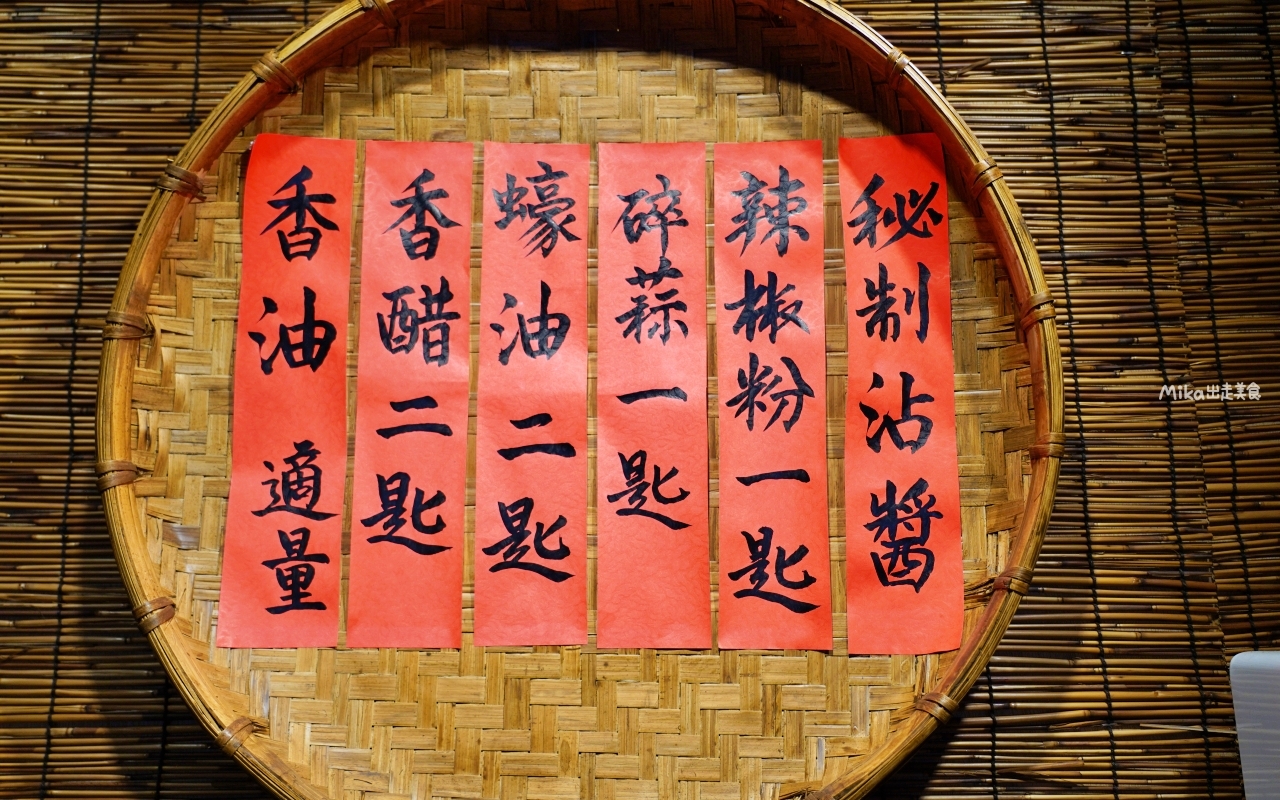 秘制沾醬
辣椒粉一匙
碎蒜一匙
蠔油二匙
香醋二匙
香油 適量
Mika出走美食